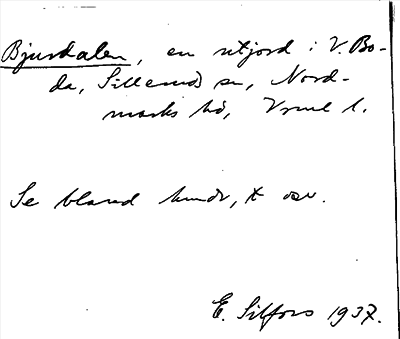 Bjurdalen, en utjord i V. Bo-
da, Sillerud sn, Nord-
marks hd, Vrml l.
Se bland
E. Silfors 1937.